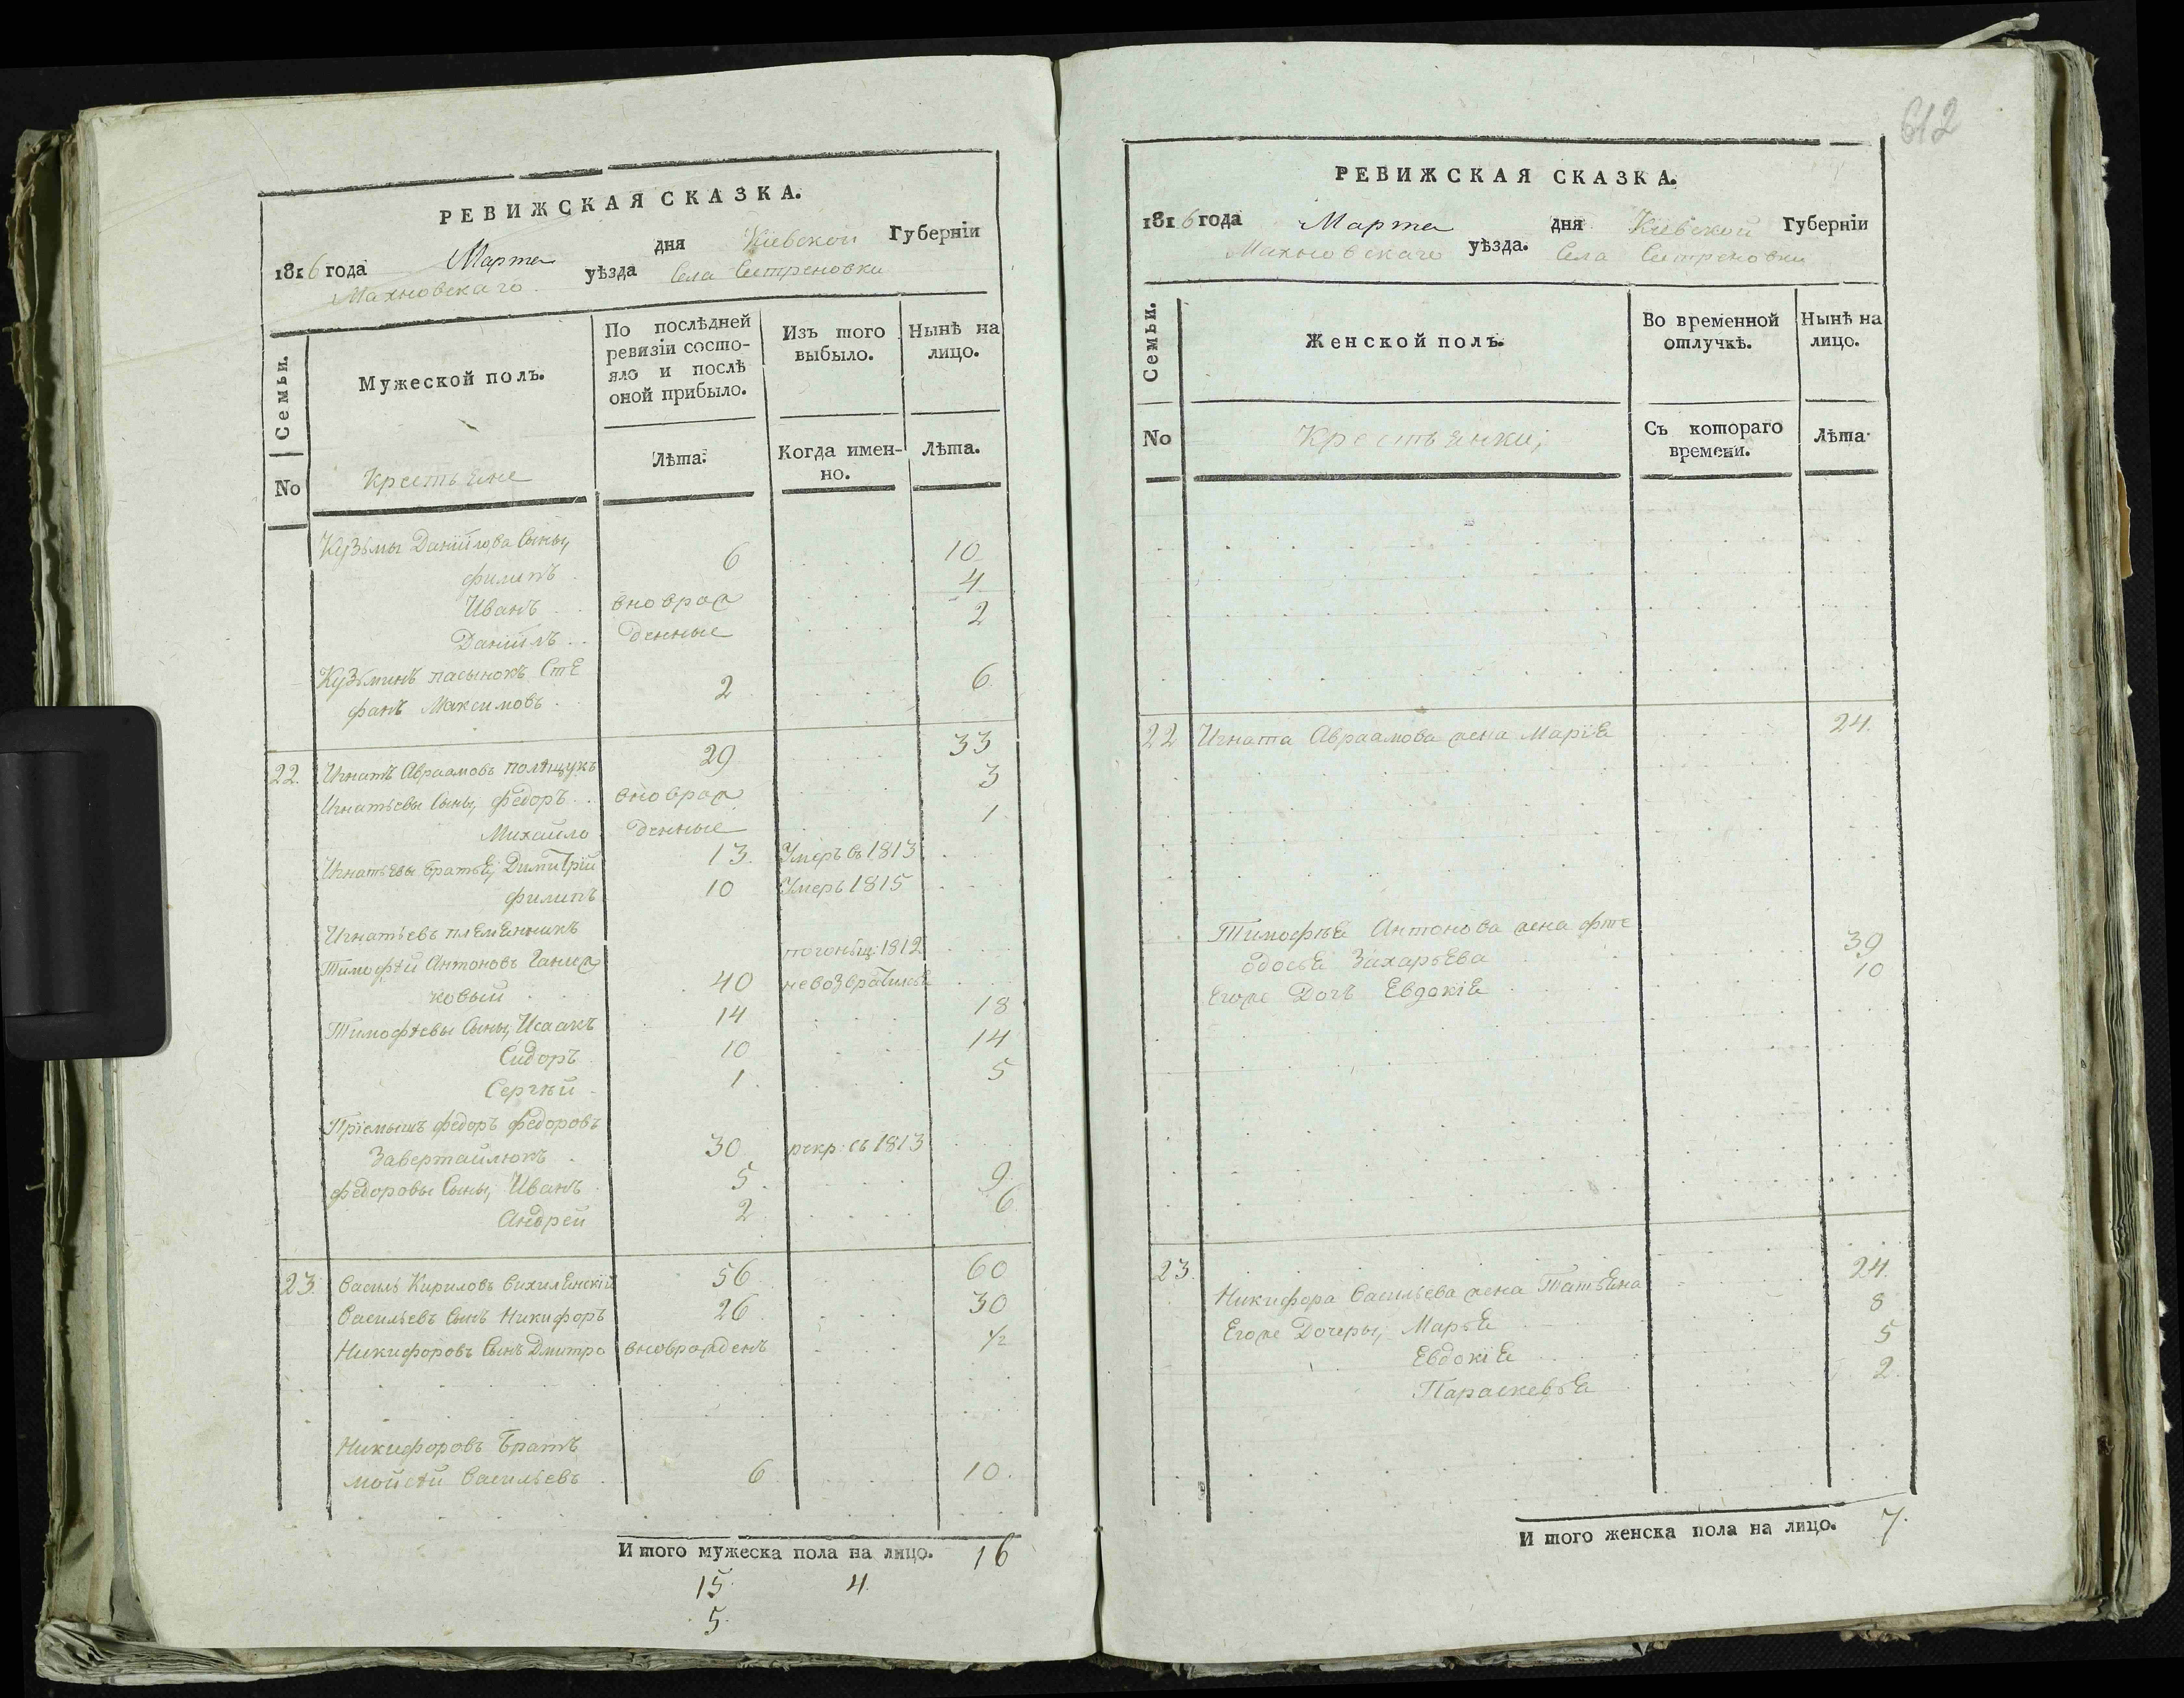 612
РЕВИЖСКАЯ СКАЗКА.
1816 года Марта дня Кіевской Губерніи
Махновскаго уѣзда Села Ситреновки
Семьи.
No
Мужеской полъ.
Крестьяне
По послѣдней
ревизіи состо-
яло и послѣ
оной прибыло.
Лѣта.
Изъ того
выбыло.
Когда имен-
но.
Нынѣ на
лицо.
Лѣта.
Кузьмы Даніилова Сыны,
Филипъ 6 10
Иванъ вновраж 4
Даніилъ денные 2
Кузьминъ пасынокъ Сте
фанъ Максимовъ 2 6
22. Игнатъ Авраамовъ полѣщукъ 29 33
Игнатьевы Сыны, Федоръ вновраж 3
Михайло денные 1
Игнатьевы братья, Димитрій 13. Умеръ въ 1813
Филипъ 10 Умеръ 1815
Игнатьевъ племянникъ
Тимофѣй Антоновъ Ганж
ковый 40 погоньщ: 1812 невозвратился
Тимофѣевы Сыны, Исаакъ 14 18
Сидоръ 10 14
Сергѣй 1 5
Пріемышъ Федоръ Федоровъ
Завертайлюкъ 30 рекр: съ 1813
Федоровы Сыны, Иванъ 5 9
Андрей 2 6
23. Василь Кириловъ 56 60
Васильевъ Сынъ Никифоръ 26 30
Никифоровъ Сынъ Дмитро вноврожденъ ½
Никифоровъ Братъ
Мойсѣй Васильевъ 6 10.
Итого мужеска пола на лицо. 16
15. 4.
5.
РЕВИЖСКАЯ СКАЗКА.
1816 года Марта дня Кіевской Губерніи
Махновскаго уѣзда. Села Ситреновки
Семьи.
No
Женской полъ.
Крестьянки,
Во временной
отлучкѣ.
Съ котораго
времени.
Нынѣ на
лицо.
Лѣта.
22 Игната Авраамова жена Марія 24.
Тимофѣя Антонова жена Фте
одосья Захарьева 39
Егоже Дочь Евдокія 10
23. Никифора Васильева жена Татьяна 24.
Егоже Дочеры, Марья 8
Евдокія 5
Параскевья 2.
Итого женска пола на лицо. 7.